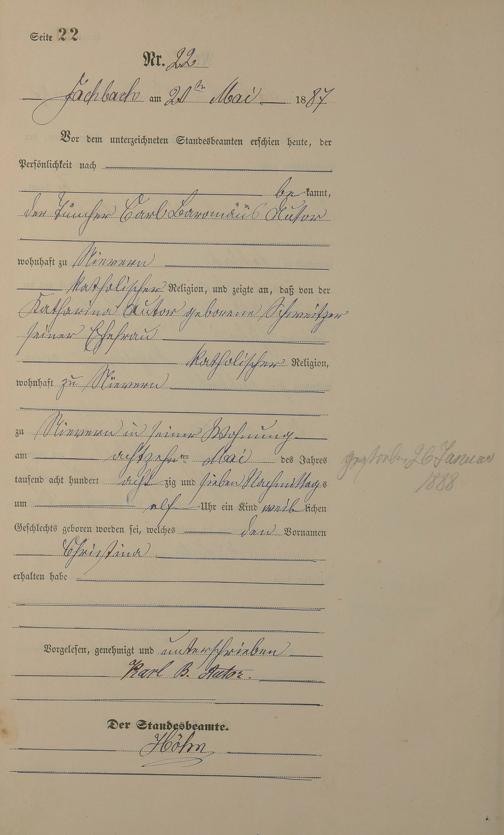 Seite 22
Nr. 22
Fachbach am 21ten Mai 1887
Vor dem unterzeichneten Standesbeamten erschien heute, der
Persönlichkeit nach
be kannt,
der Tüncher Carl Baromäus Autor
wohnhaft zu Nievern
katholischer Religion, und zeigte an, daß von der
Katharina Autor geborene Schweitzer
seiner Ehefrau
katholischer Religion,
wohnhaft zu Nievern
zu Nievern in seiner Wohnung
am achtzehnten Mai des Jahres
tausend acht hundert acht zig und sieben Nachmittags
um elf Uhr ein Kind weib lichen
Geschlechts geboren worden sei, welches den Vornamen
Christina
erhalten habe
gestorben 26 Januar
1888
Vorgelesen, genehmigt und unterschrieben
Karl B. Autor.
Der Standesbeamte.
Höhn